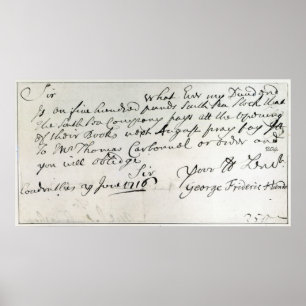 Sir
What Ever my Dividend
Is on five hundred pounds South Sea Stock that
the South Sea Company pays att the opening
of their Books next August pray pay
To Mr Thomas Carbonnel or order and
you will oblidge
Sir
Your
London this 29 June 1716
George Frideric